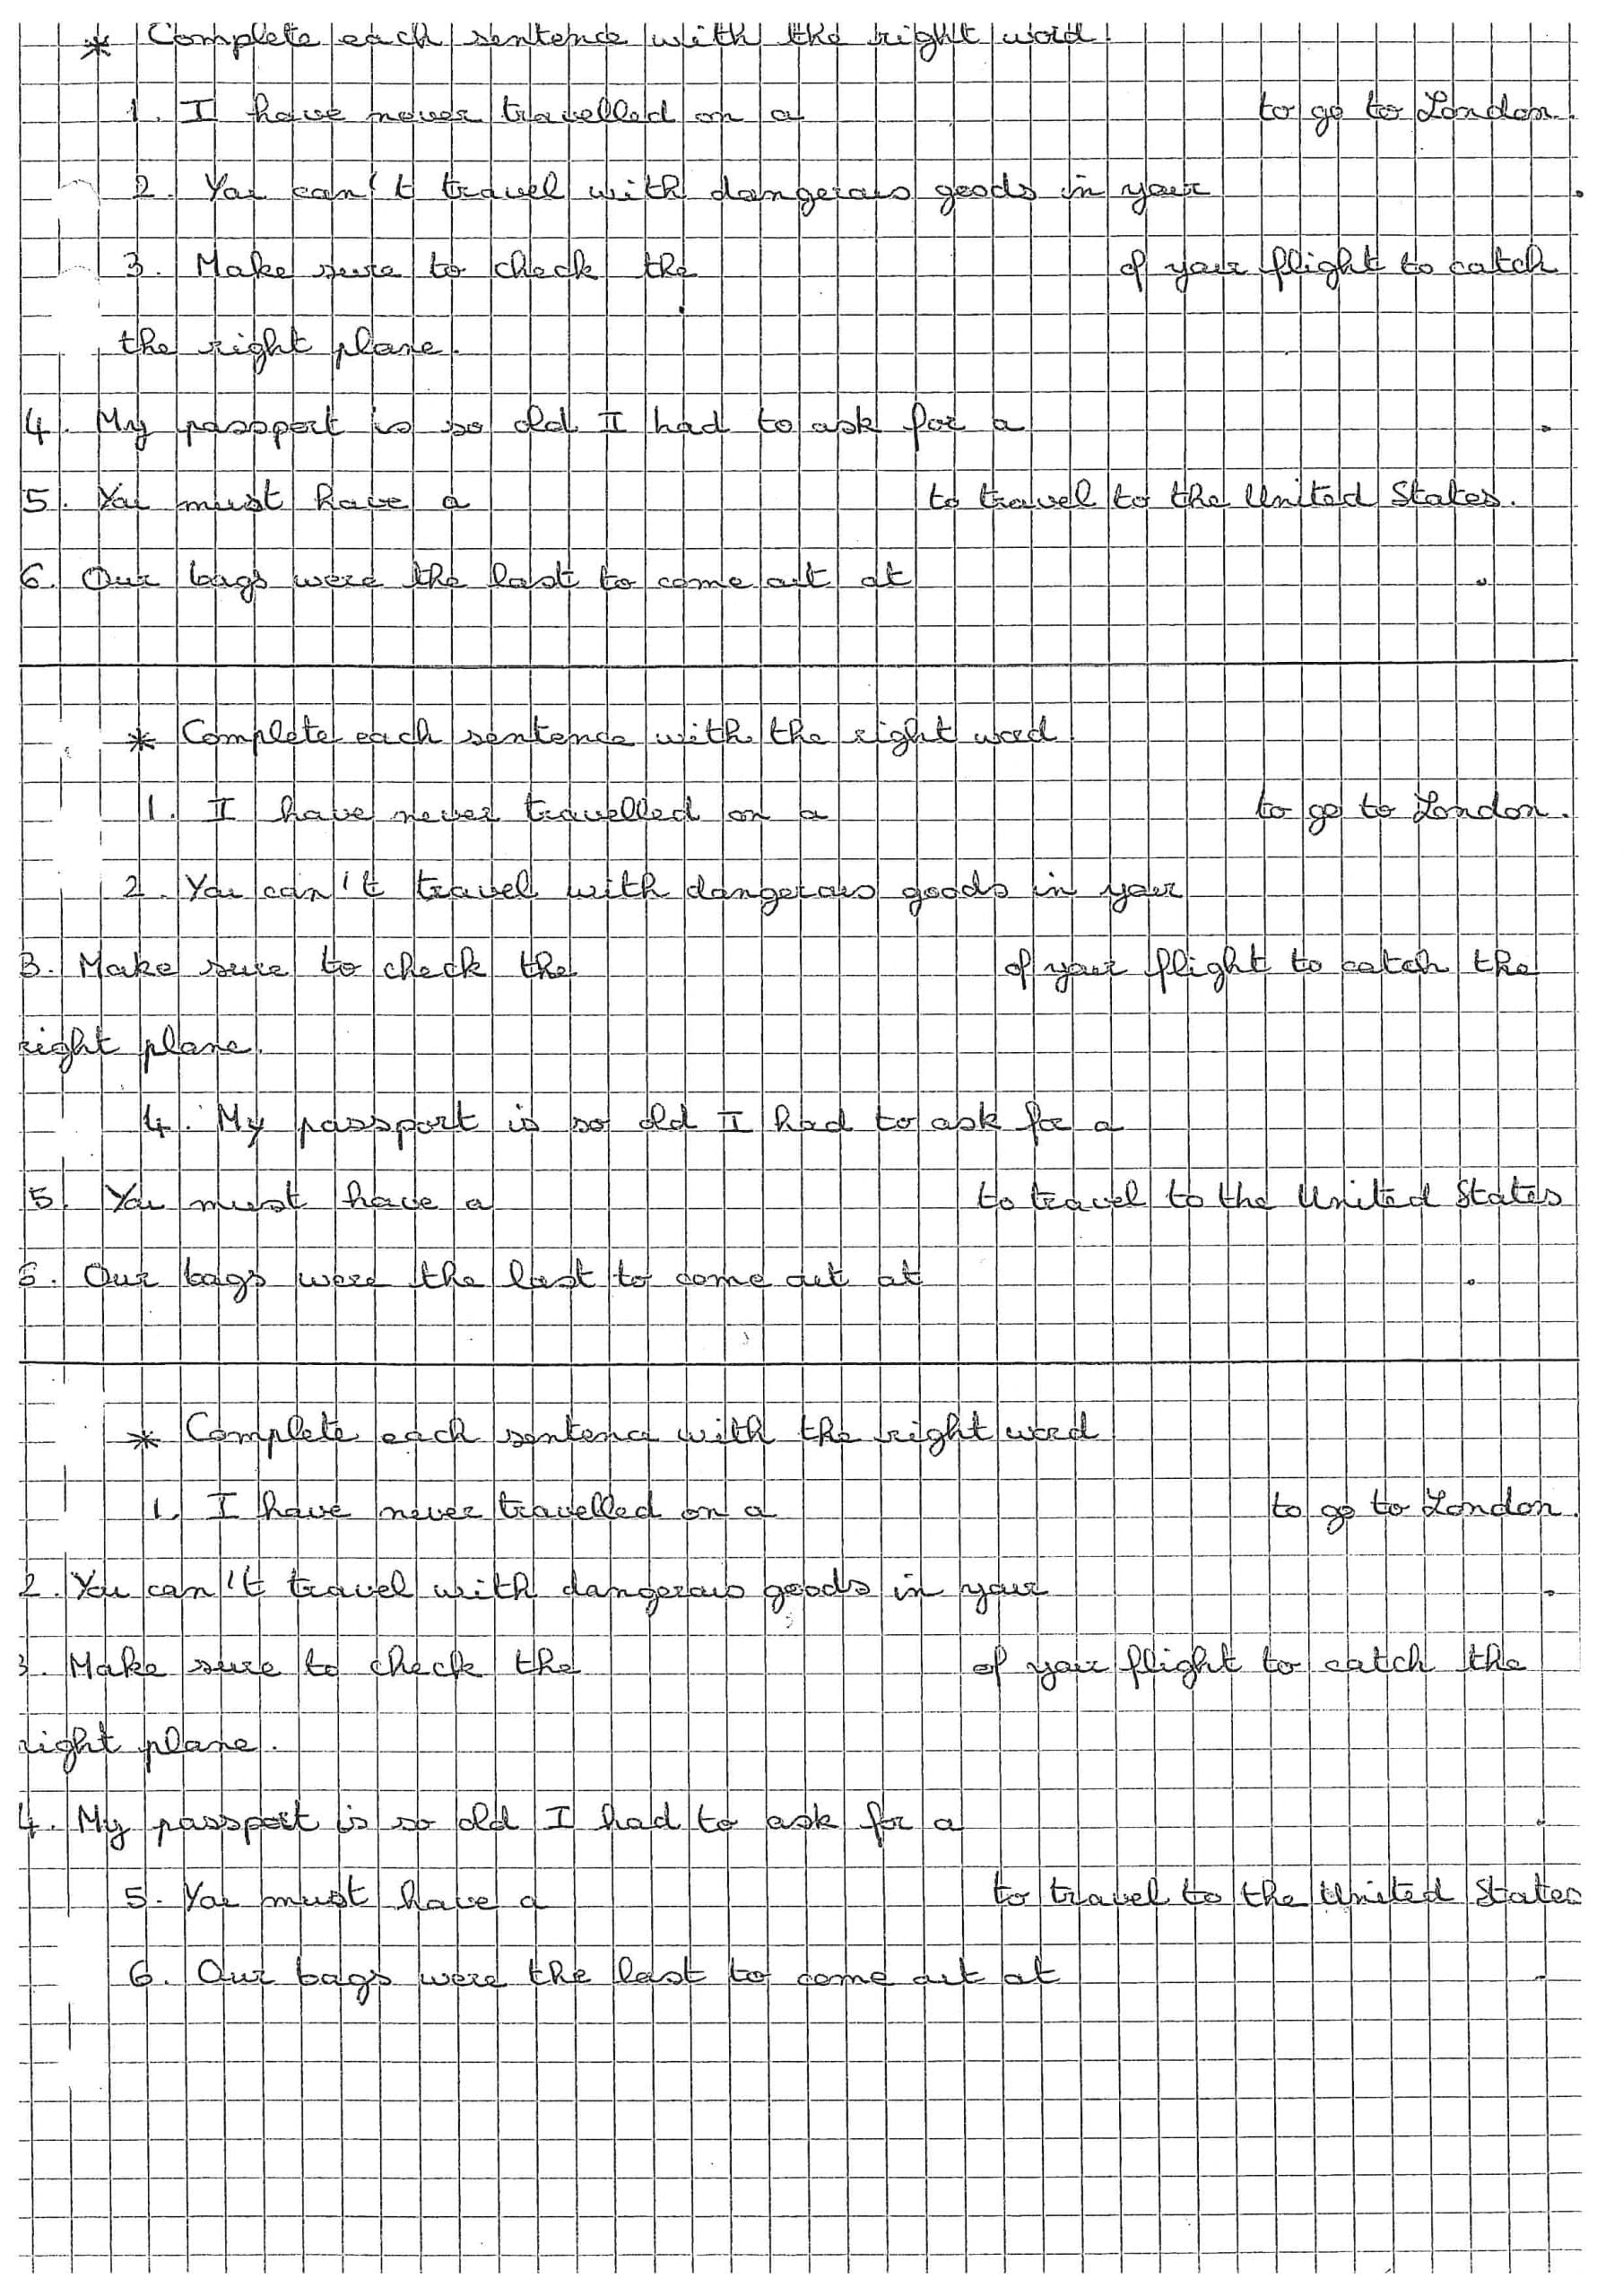 * Complete each sentence with the right word
1. I have never travelled on a to go to London.
2. You can't travel with dangerous goods in your .
3. Make sure to check the of your flight to catch
the right plane.
4. My passport is so old I had to ask for a .
5. You must have a to travel to the United States.
6. Our bags were the last to come out at .
* Complete each sentence with the right word
1. I have never travelled on a to go to London.
2. You can't travel with dangerous goods in your
3. Make sure to check the of your flight to catch the
right plane.
4. My passport is so old I had to ask for a
5. You must have a to travel to the United States
6. Our bags were the last to come out at .
* Complete each sentence with the right word
1. I have never travelled on a to go to London.
2. You can't travel with dangerous goods in your .
3. Make sure to check the of your flight to catch the
right plane.
4. My passport is so old I had to ask for a .
5. You must have a to travel to the United States
6. Our bags were the last to come out at .